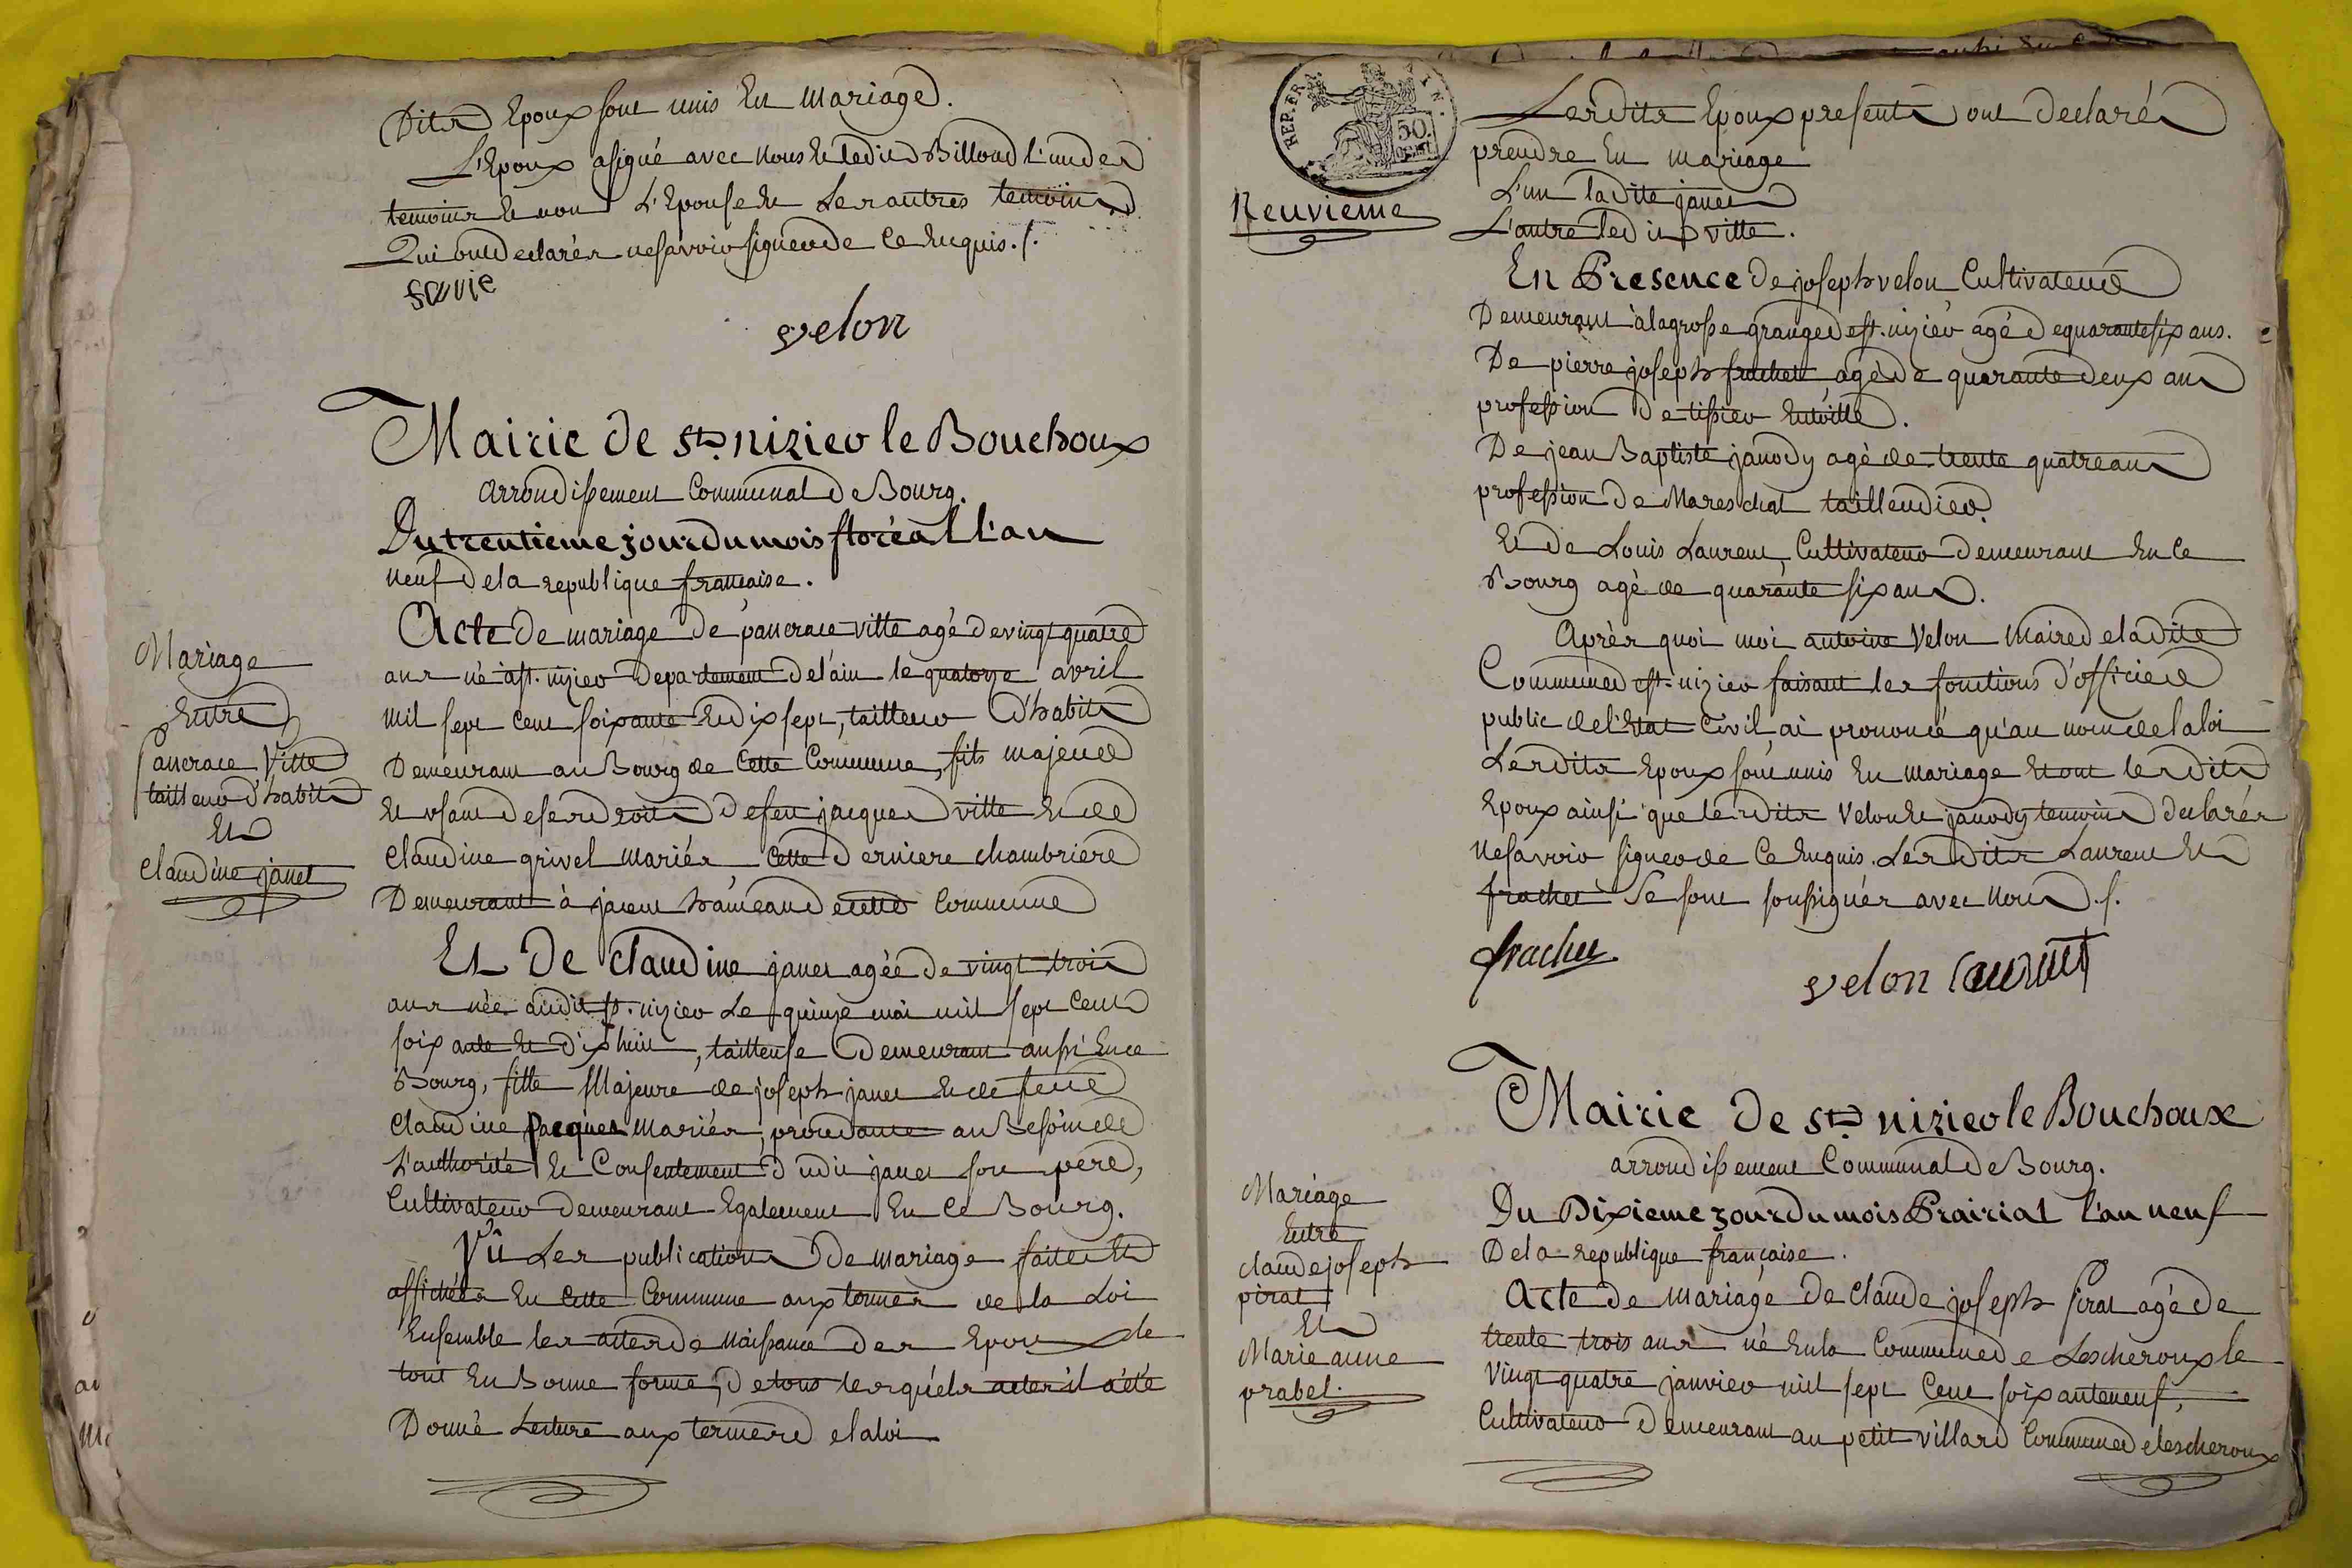 Dits Epoux sont unis En Mariage.
L'Epoux a signé avec nous Et Ledit Billoud l'un des
temoins Et non L'Epouse Et Les autres temoins
Qui ont declarés ne savoir signer de Ce Enquis./.
velon
Mairie de st. nizier le Bouchoux
arrondissement Communal de Bourg.
Du trentieme jour du mois floréal l'an
neuf de la republique francaise.
Mariage
Entre
pancrace Vitte
tailleur d'habits
Et
Claudine janet
Acte de mariage de pancrace vitte agé de vingt quatre
ans né a st. nizier Departement de l'ain le quatorze avril
mil sept cent soixante Et dix sept, tailleur D'habits
Demeurant au Bourg de Cette Commune, fils majeur
Et usant de ses droits de feu jacques vitte Et de
Claudine grivel mariés, Cette Derniere chambriere
Demeurant à hameau de cette Commune
Et De Claudine janet agée de vingt trois
ans née audit st. nizier Le quinze mai mil sept Cent
soixante Et Dix huit, tailleuse Demeurant aussi En ce
Bourg, fille Majeure de joseph janet Et de feue
Claudine Pacquer mariés, procedante au Besoin de
L'authorité Et Consentement dudit janet son pere,
Cultivateur Demeurant Egalement En Ce Bourg.
Vû Les publications De mariage faites Et
affichées En Cette Commune aux termes de la Loi
Ensemble les actes de Naissance des Epoux le
tout En Bonne forme, De tous lesquels actes il a été
Donné Lecture aux termes de la loi
REP. FRA.
50.
CENT.
Neuvieme
Lesdits Epoux presents ont declarés
prendre En mariage
L'un ladite janet
L'autre ledit vitte.
En Presence De joseph velon Cultivateur
Demeurant à la grosse grange de st. nizier agé de quarante six ans.
De pierre joseph frachet agé de quarante deux ans
profession de tissier
De jean Baptiste janody agé de trente quatre ans
profession de Mareschal taillendier.
Et de Louis Laurent, Cultivateur demeurant En Ce
Bourg agé de quarante six ans.
Après quoi moi antoine Velon Maire de ladite
Commune de st. nizier faisant les fonctions d'officier
public de l'Etat Civil ai prononcé qu'au nom de la loi
Lesdits Epoux sont unis En mariage Et ont lesdits
Epoux ainsi que lesdits Velon Et janody temoins declarés
ne savoir signer de Ce Enquis. Lesdits Laurent Et
frachet Se sont soussignés avec nous ./.
frachet
velon Laurent
Mairie de st. nizier le Bouchoux
arrondissement Communal de Bourg.
Du Dixieme jour du mois Prairial l'an neuf
De la republique française.
Mariage
Entre
claude joseph
pirat
Et
Marie anne
prabel.
Acte de mariage de Claude joseph Pirat agé de
trente trois ans né En la Commune de Lescheroux le
Vingt quatre janvier mil sept Cent soixante neuf,
Cultivateur Demeurant au petit villard Commune de lescheroux